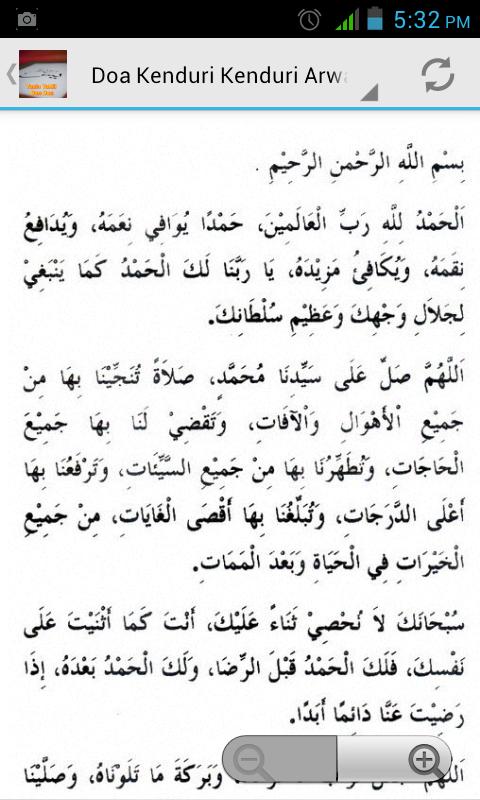 5:32 PM
Doa Kenduri Kenduri Arwa
بِسْمِ اللَّهِ الرَّحْمنِ الرَّحِيْمِ .
اَلْحَمْدُ لِلَّهِ رَبِّ الْعَالَمِيْنَ، حَمْدًا يُوَافِي نِعَمَهُ، وَيُدَافِعُ
نِقَمَهُ، وَيُكَافِئُ مَزِيْدَهُ، يَا رَبَّنَا لَكَ الْحَمْدُ كَمَا يَنْبَغِيْ
لِجَلَالِ وَجْهِكَ وَعَظِيْمِ سُلْطَانِكَ.
اَللَّهُمَّ صَلِّ عَلَى سَيِّدِنَا مُحَمَّدٍ، صَلاَةً تُنَجِّيْنَا بِهَا مِنْ
جَمِيْعِ اْلأَهْوَالِ وَاْلآفَاتِ، وَتَقْضِيْ لَنَا بِهَا جَمِيْعَ
الْحَاجَاتِ، وَتُطَهِّرُنَا بِهَا مِنْ جَمِيْعِ السَّيِّئَاتِ، وَتَرْفَعُنَا بِهَا
أَعْلَى الدَّرَجَاتِ، وَتُبَلِّغُنَا بِهَا أَقْصَى الْغَايَاتِ، مِنْ جَمِيْعِ
الْخَيْرَاتِ فِي الْحَيَاةِ وَبَعْدَ الْمَمَاتِ.
سُبْحَانَكَ لاَ نُحْصِيْ ثَنَاءً عَلَيْكَ، أَنْتَ كَمَا أَثْنَيْتَ عَلَى
نَفْسِكَ، فَلَكَ الْحَمْدُ قَبْلَ الرِّضَا، وَلَكَ الْحَمْدُ بَعْدَهُ، إِذَا
رَضِيْتَ عَنَّا دَائِمًا أَبَدًا.
وَبَرَكَةَ مَا تَلَوْنَاهُ، وَصَلَّيْنَا